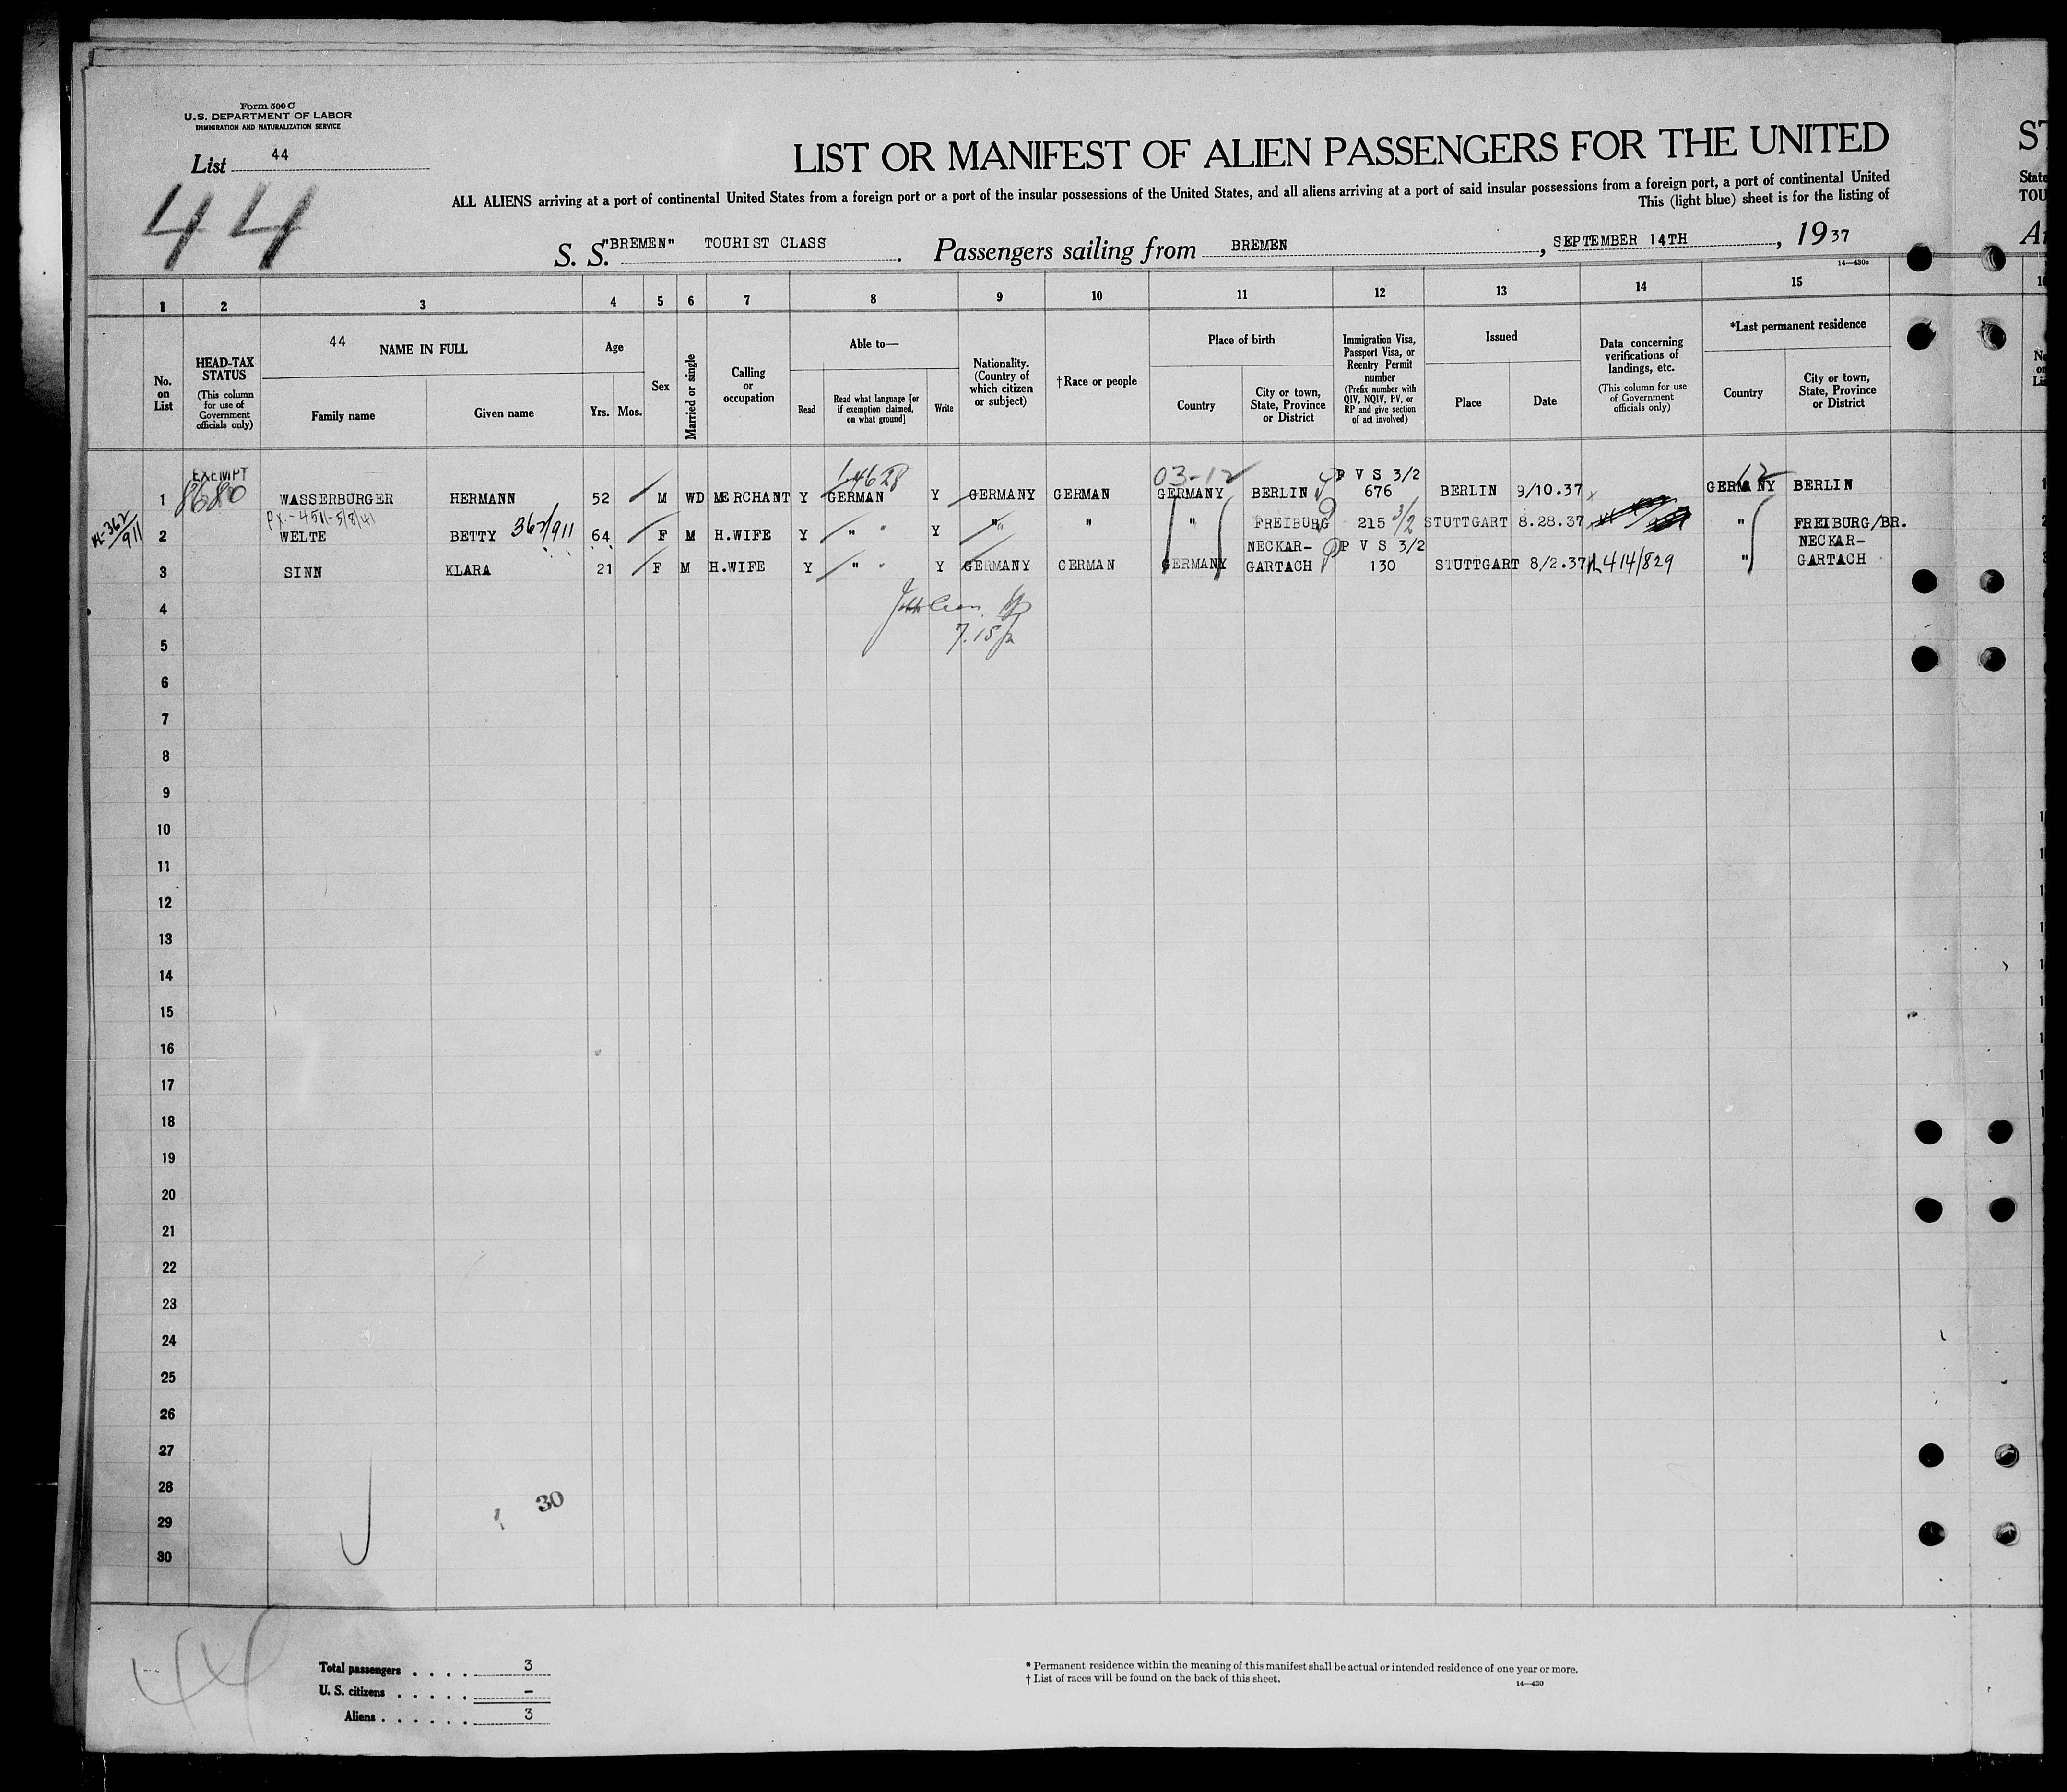 Form 500 C
U.S. DEPARTMENT OF LABOR
IMMIGRATION AND NATURALIZATION SERVICE
List 44
44
LIST OR MANIFEST OF ALIEN PASSENGERS FOR THE UNITED
ST
ALL ALIENS arriving at a port of continental United States from a foreign port or a port of the insular possessions of the United States, and all aliens arriving at a port of said insular possessions from a foreign port, a port of continental United
State
This (light blue) sheet is for the listing of
TOU
S. S. "BREMEN" TOURIST CLASS . Passengers sailing from BREMEN , SEPTEMBER 14TH , 19 37
14—430c
1 2 3 4 5 6 7 8 9 10 11 12 13 14 15
No. on List
HEAD-TAX STATUS (This column for use of Government officials only)
44 NAME IN FULL
Family name
Given name
Age
Yrs. Mos.
Sex
Married or single
Calling or occupation
Able to—
Read
Read what language [or if exemption claimed, on what ground]
Write
Nationality. (Country of which citizen or subject)
†Race or people
Place of birth
Country
City or town, State, Province or District
Immigration Visa, Passport Visa, or Reentry Permit number (Prefix number with QIV, NQIV, PV, or RP and give section of act involved)
Issued
Place
Date
Data concerning verifications of landings, etc. (This column for use of Government officials only)
*Last permanent residence
Country
City or town, State, Province or District
EXEMPT 03-12 P V S 3/2 12
1 8680 WASSERBURGER HERMANN 52 M WD MERCHANT Y GERMAN Y GERMANY GERMAN GERMANY BERLIN 676 BERLIN 9/10.37 GERMANY BERLIN
Px.-4511-5/8/41
362/911 2 WELTE BETTY 362/911 64 F M H.WIFE Y " " Y " " " FREIBURG 215 3/2 STUTTGART 8.28.37 " FREIBURG/BR.
NECKAR- P V S 3/2 NECKAR-
3 SINN KLARA 21 F M H.WIFE Y " " Y GERMANY GERMAN GERMANY GARTACH 130 STUTTGART 8/2.37 414/829 " GARTACH
4
5
6
7
8
9
10
11
12
13
14
15
16
17
18
19
20
21
22
23
24
25
26
27
28
30
29
30
44
Total passengers . . . . 3
U. S. citizens . . . . . –
Aliens . . . . . . 3
* Permanent residence within the meaning of this manifest shall be actual or intended residence of one year or more.
† List of races will be found on the back of this sheet.
14—430